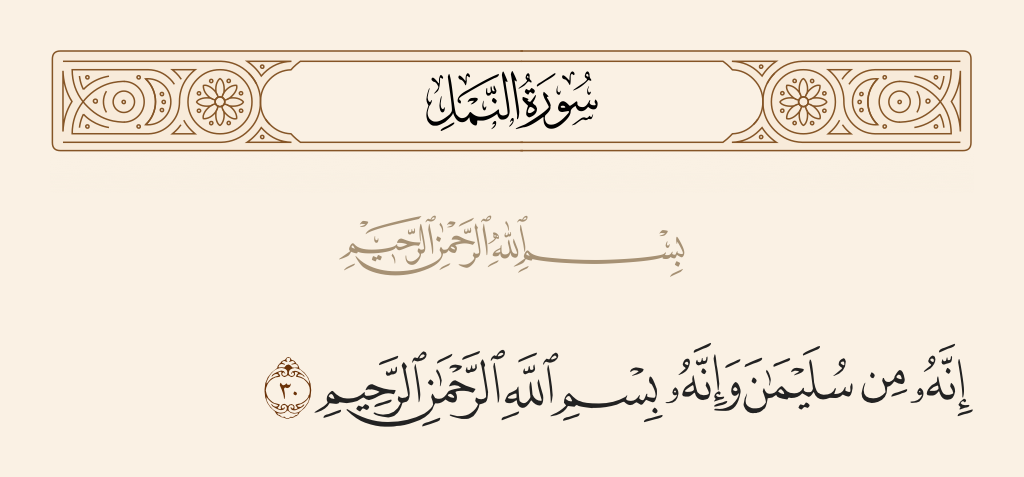 سُورَةُ النَّمْلِ
بِسْمِ ٱللَّهِ ٱلرَّحْمَٰنِ ٱلرَّحِيمِ
إِنَّهُۥ مِن سُلَيْمَٰنَ وَإِنَّهُۥ بِسْمِ ٱللَّهِ ٱلرَّحْمَٰنِ ٱلرَّحِيمِ ٣٠